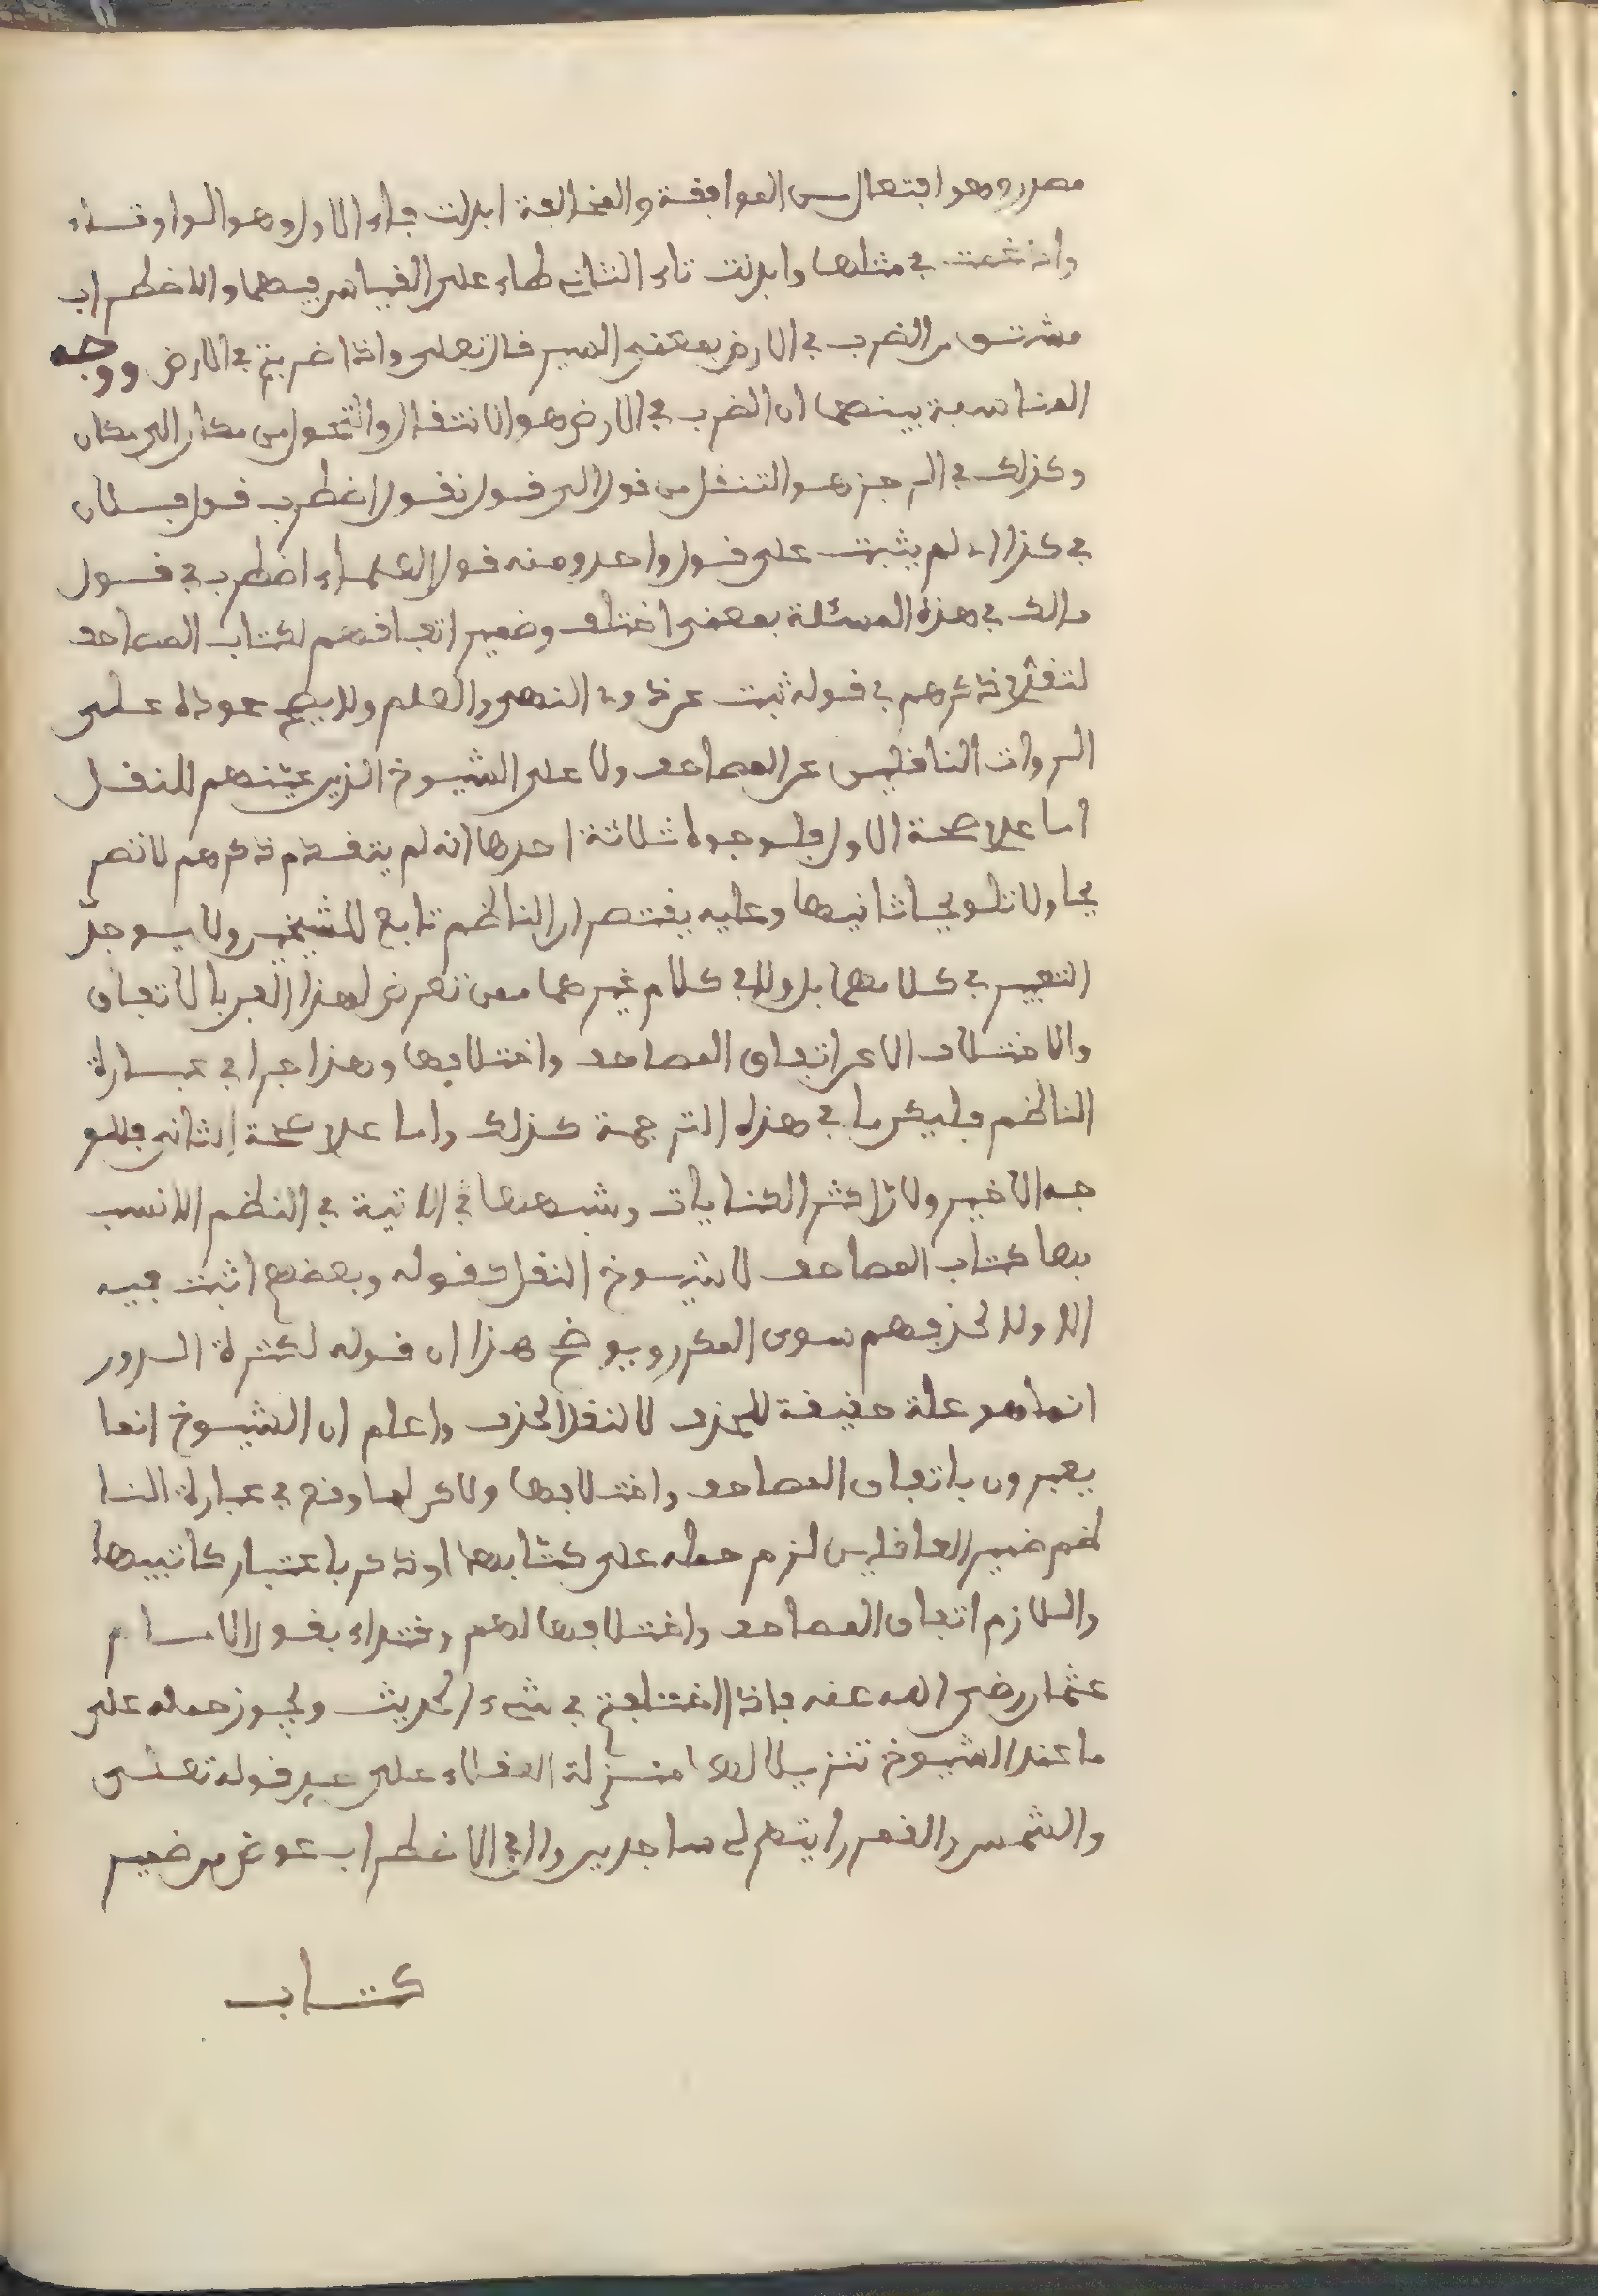 مصدره وهو افتعال من الموافقة والمخالفة ابدلت فاء الاول وهو الواو تاء
وادغمت في مثلها وابدلت تاء الثاني طاء على القياس فيهما والاضطراب
مشتق من الضرب في الارض بمعنى السير قال تعلى واذا ضربتم في الارض ووجه
المناسبة بينهما ان الضرب في الارض هو الانتقال والتحول من مكان الى مكان
وكذلك في الرجز هو التنقل من قول الى قول تقول اضطرب قول فلان
في كذا اذا لم يثبت على قول واحد ومنه قول العلماء اضطرب في قول
مالك في هذه المسئلة بمعنى اختلف وضمير اتفاقهم لكتاب المصاحف
لتقدم ذكرهم في قوله ثبت عن ذوي النهى والعلم ولا يصح عوده على
الروات الناقلين عن المصاحف ولا على الشيوخ الذين عينهم للنقل
اما عدم صحة الاول فلوجوه ثلاثة احدها انه لم يتقدم ذكرهم لا تصر
يحا ولا تلويحا ثانيها وعليه يقتصر ان الناظم تابع للشيخين ولا يوجد
التعبير في كلامهما بل ولا في كلام غيرهما ممن تعرض لهذا الفن بالاتفاق
والاختلاف الا عن اتفاق المصاحف واختلافها وهذا جرا في عبارة
الناظم فليكن ما في هذه الترجمة كذلك واما عدم صحة الثاني فللو
جه الاخير ولان اكثر الكنايات وشبهها في الاتية في النظم الانسب
بها كتاب المصاحف لا شيوخ النقل كقوله وبعضهم اثبت فيه
الاولا لحذفهم سوى المكرر ويوضح هذا ان قوله لكثرة الدور
انما هو علة حقيقة للحذف لا لنقل الحذف واعلم ان الشيوخ انما
يعبرون باتفاق المصاحف واختلافها ولاكن لما وقع في عبارة النا
ظم ضمير العاقلين لزم حمله على كتابها او ذكر باعتبار كاتبيها
واللازم اتفاق المصاحف واختلافها لهم وقتداء بقول الامام
عثمان رضي الله عنه فاذا اختلفتم في شيء الحديث ويجوز حمله على
ما عند الشيوخ تنزيلا لها منزلة العقلاء على حد قوله تعلى
والشمس والقمر رايتهم لي ساجدين وال في الاضطراب عوض من ضمير
كتاب